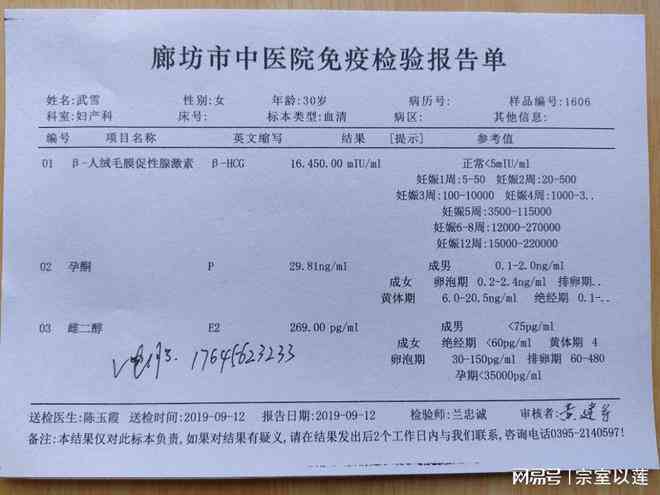 廊坊市中医院免疫检验报告单
姓名:武雪 性别:女 年龄:30岁 病历号: 样品编号:1606
科室:妇产科 床号: 标本类型:血清 病区: 其他信息:
编号 项目名称 英文缩写 结果 [提示] 参考值
01 β-人绒毛膜促性腺激素 β-HCG 16.450.00 mIU/ml 正常<5mIU/ml
妊娠1周:5-50 妊娠2周:20-500
妊娠3周:100-10000 妊娠4周:1000-3..
妊娠5周:3500-115000
妊娠6-8周:12000-270000
妊娠12周:15000-220000
02 孕酮 P 29.81ng/ml 成男 0.1-2.0ng/ml
成女 卵泡期 0.2-2.4ng/ml 排卵期..
黄体期 6.0-20.5ng/ml 绝经期 0.1-..
03 雌二醇 E2 269.00 pg/ml 成男 <75pg/ml
成女 绝经期 <60pg/ml 黄体期 4
卵泡期 30-150pg/ml 排卵期 60-480
孕期<35000pg/ml
17645623233
送检医生:陈玉霞 送检时间:2019-09-12 报告日期:2019-09-12 检验师:兰忠诚 审核者:
备注:本结果仅对此标本负责,如果对结果有疑义,请在结果发出后2个工作日内与我们联系,咨询电话0395-2140597!
网易号|宗室以莲